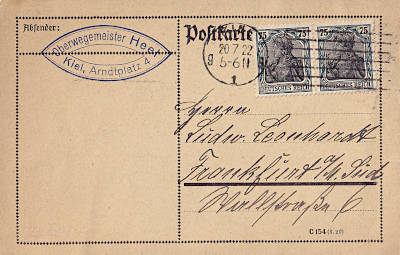 Absender:
Oberwegemeister Heer
Kiel, Arndtplatz 4
Postkarte
KIEL
20.7.22
9 5-6 N
1
75 75
75 75
DEUTSCHES REICH
DEUTSCHES REICH
Herrn
Ludw. Leonhardt
Frankfurt a/M. Süd
Wallstraße 6
C 154 (6. 20)